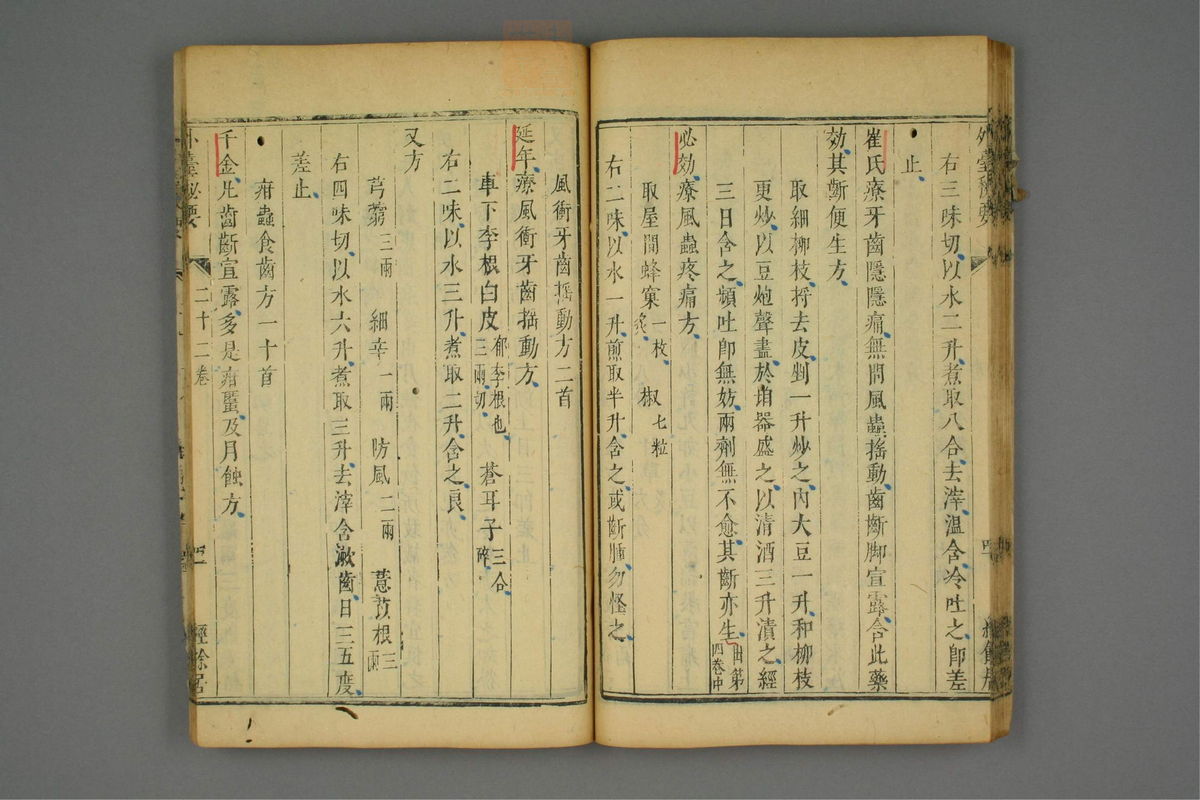 外臺秘要
右三味切以水二升煮取八合去滓溫含冷吐之卽差
止
崔氏療牙齒隱隱痛無問風蟲搖動齒齗脚宣露含此藥
効其齗便生方
取細柳枝捋去皮剉一升炒之內大豆一升和柳枝
更炒以豆炮聲盡於垍器盛之以清酒三升漬之經
三日含之頻吐卽無妨兩劑無不愈其齗亦生出第四卷中
必効療風蟲疼痛方
取屋間蜂窠一枚炙 椒七粒
右二味以水一升煎取半升含之或齗腫勿怪之
風衝牙齒搖動方二首
延年療風衝牙齒搖動方
車下李根白皮三兩切郁李根也 蒼耳子三合碎
右二味以水三升煮取二升含之良
又方
芎藭三兩 細辛一兩 防風二兩 薏苡根三兩
右四味切以水六升煮取三升去滓含漱齒日三五度
差止
疳蟲食齒方一十首
千金凡齒齗宣露多是疳䘌及月蝕方
外臺秘要 二十二卷 經餘居